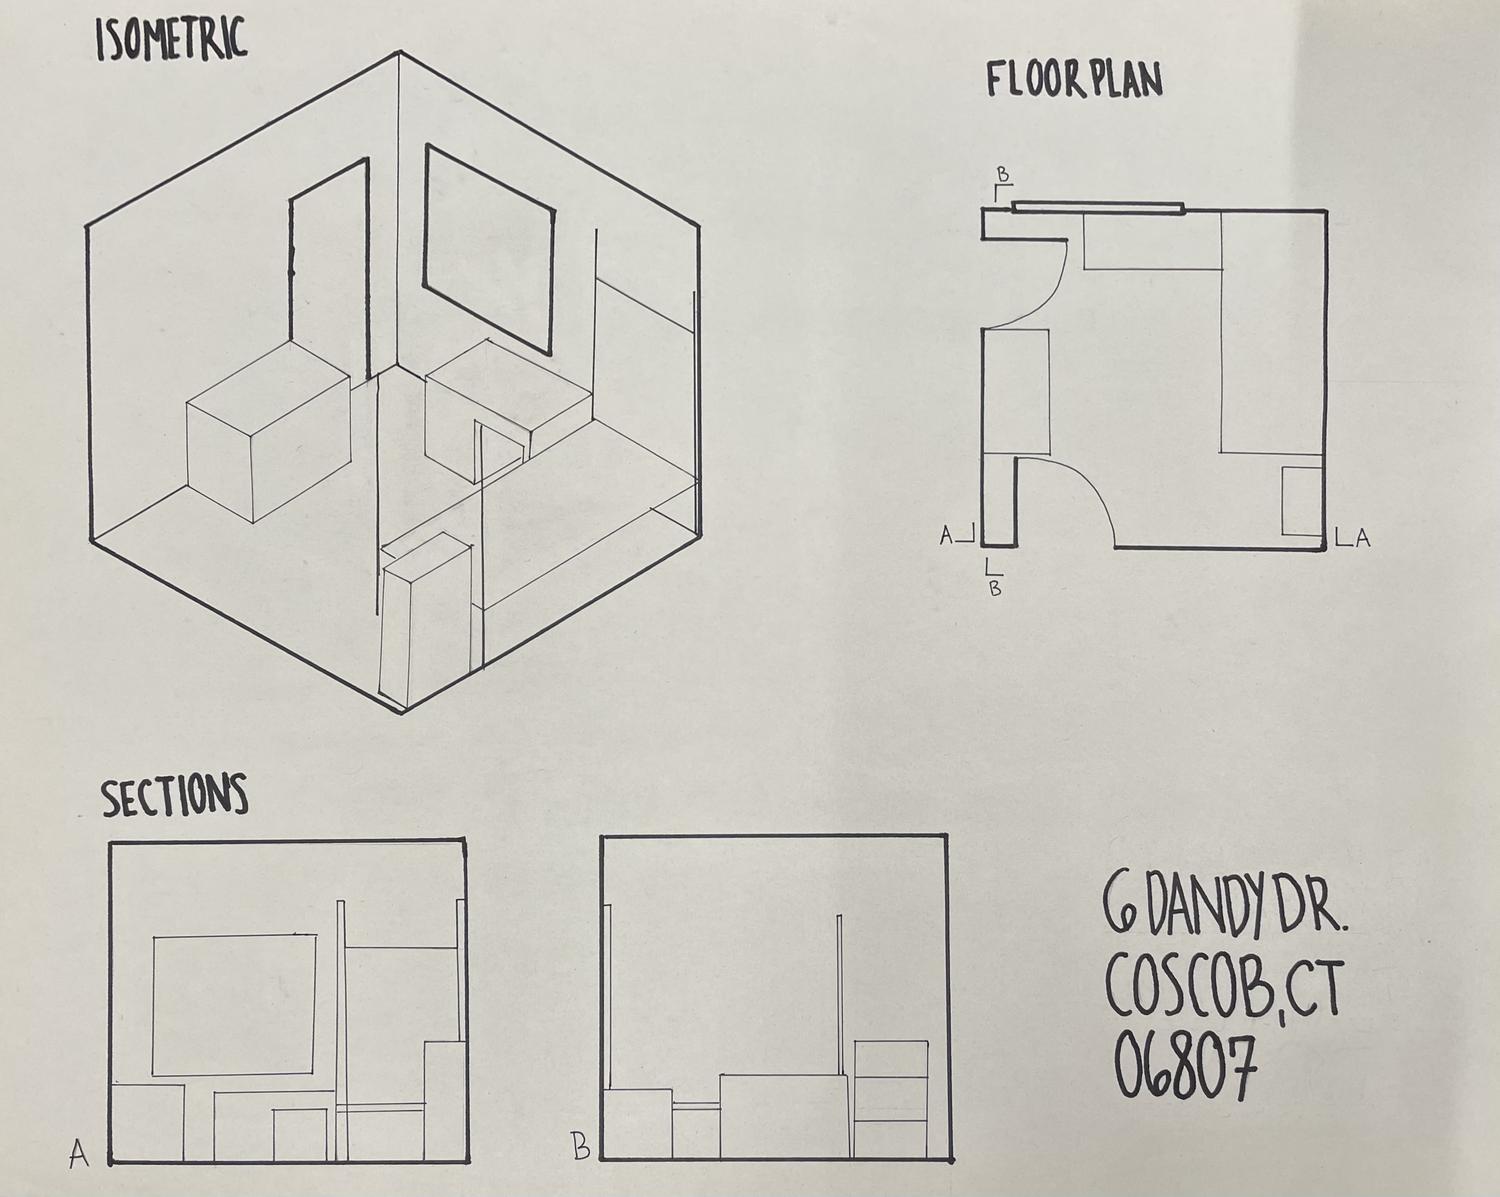 ISOMETRIC
FLOOR PLAN
B
A
A
B
SECTIONS
A
B
6 DANDY DR.
COSCOB, CT
06807